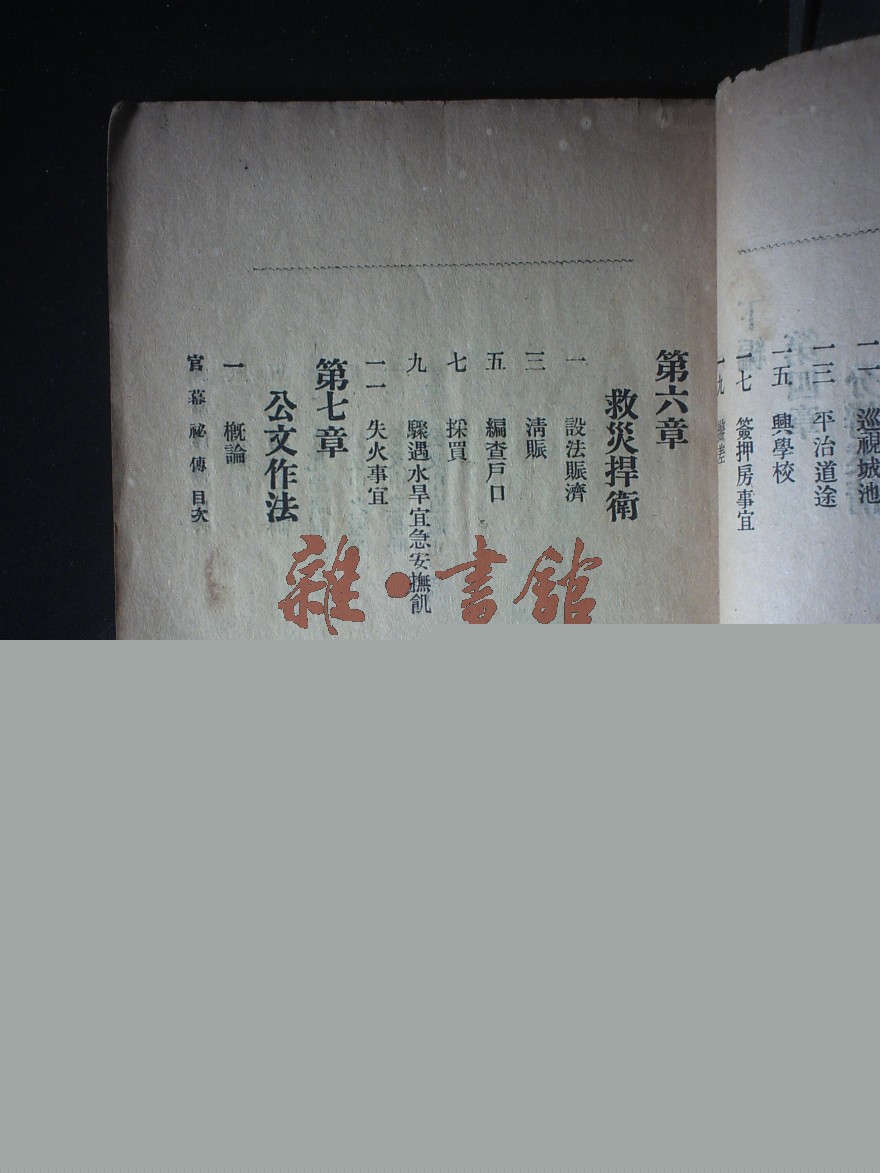 一一 巡視城池
一三 平治道途
一五 興學校
一七 簽押房事宜
一九
第六章
救災捍衛
一 設法賑濟
三 清賑
五 編查戶口
七 採買
九 驟遇水旱宜急安撫飢
一一 失火事宜
第七章
公文作法
一 概論
官幕祕傳 目次
雜·書館